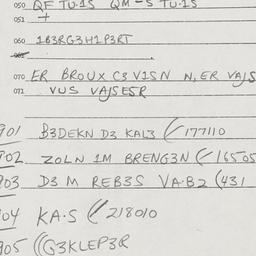 050 QF TU·1S QM–S TU·1S
051 +
060 1B3RG3H1P3RT
070 ER BROUX C3 V1SN N, ER VAJS
071 VUS VAJSESR
901 B3DEKN D3 KAL3 (177110
902 ZOLN 1M BRENG3N (16505
903 D3 M REB3S VA·B2 (431
904 KA·S (218010
905 ((G3KLEP3R